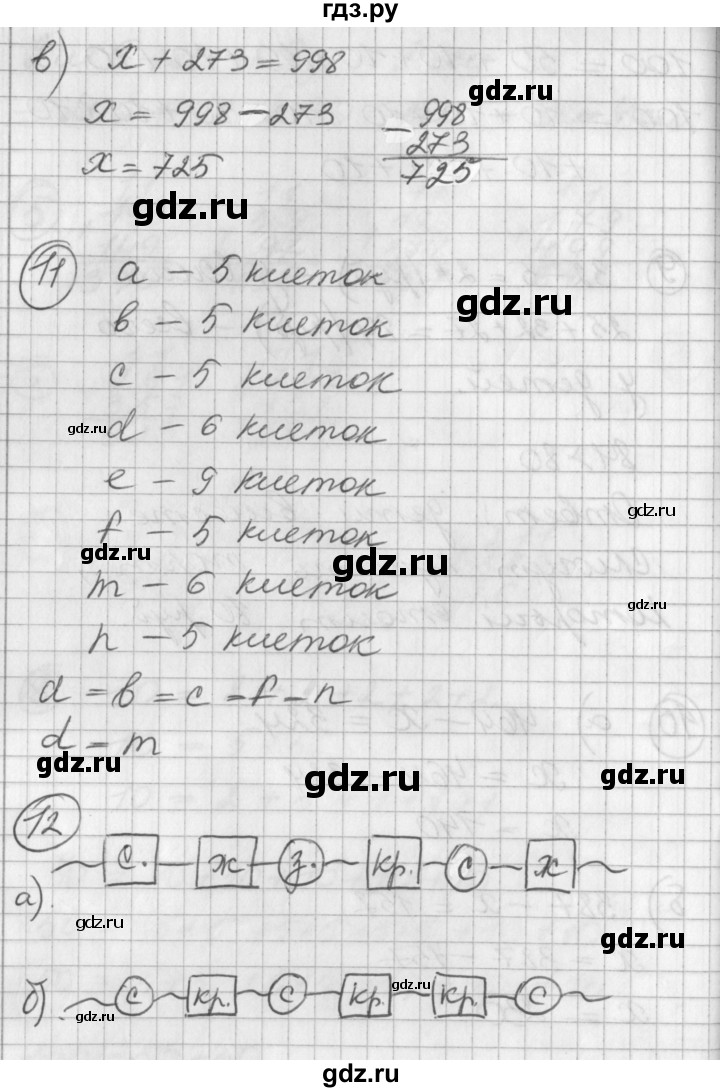 гдз.ру
в) x + 273 = 998
x = 998 - 273
x = 725
- 998
273
725
gdz.ru
gdz.ru
11 a - 5 клеток
в - 5 клеток
gdz.ru
c - 5 клеток
gdz.ru
d - 6 клеток
e - 9 клеток
gdz.ru
f - 5 клеток
gdz.ru
gdz.ru
m - 6 клеток
gdz.ru
n - 5 клеток
d = в = c = f = n
d = m
gdz.ru
gdz.ru
gdz.ru
12
а) с. ж з. кр. с ж
gdz.ru
gdz.ru
б) с кр. с кр. кр. с
gdz.ru
gdz.ru
gdz.ru